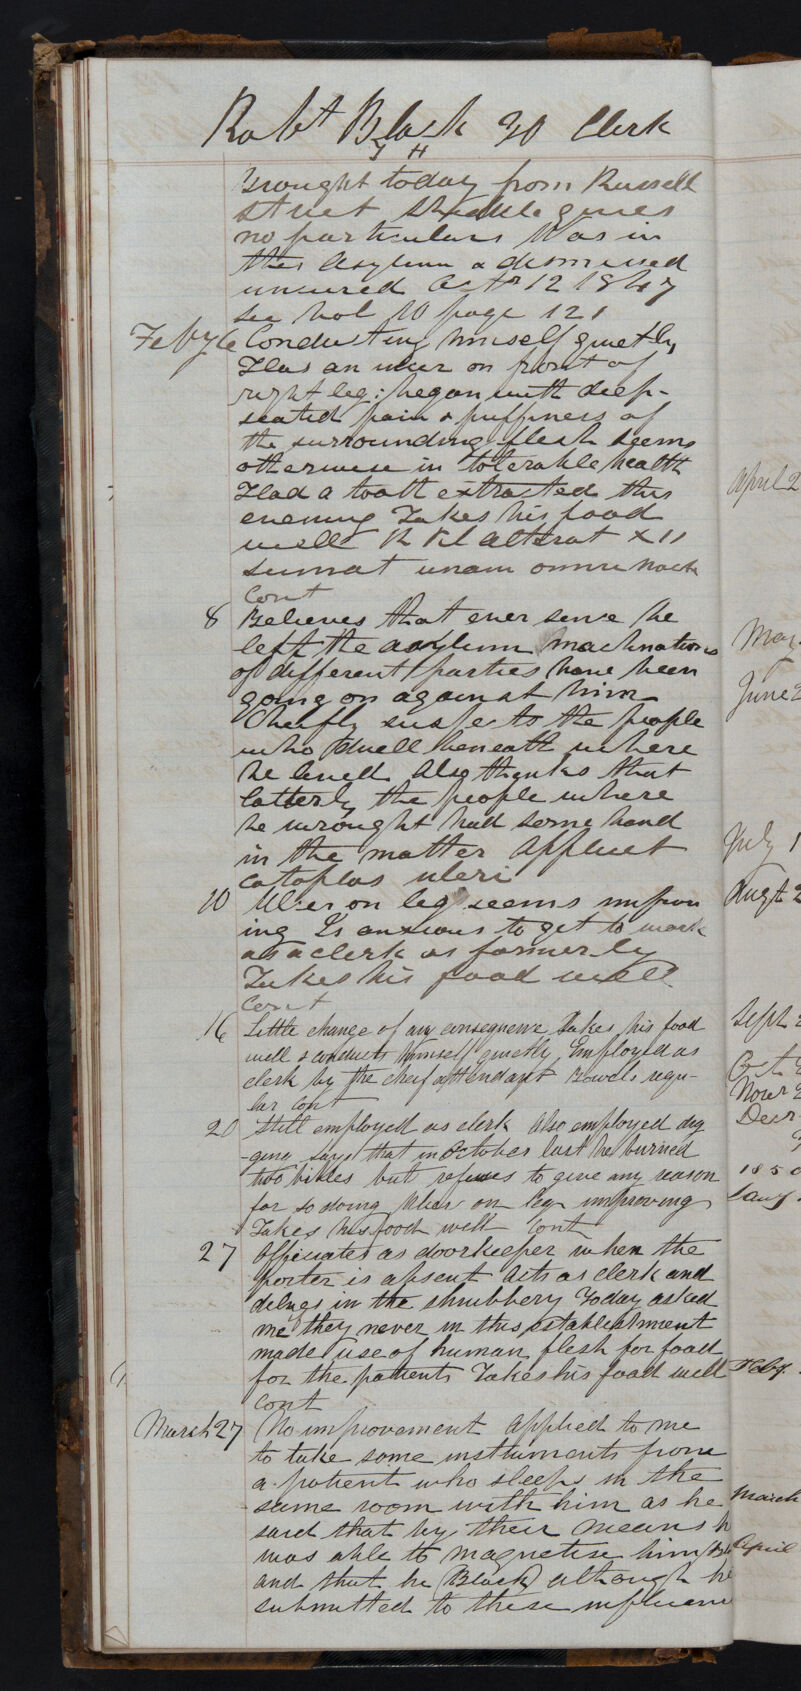 Robt Black 30 Clerk
Y H
Brought today from Russell
Street Strable gives
no particulars Was in
this Asylum & dismissed
uncured Octr 12 1847
see Vol 10 page 121
Feby 6 Conducting himself quietly
Has an ulcer on front of
right leg: began with deep-
seated pain & puffiness of
the surrounding flesh seems
otherwise in tolerable health
Had a tooth extracted this
evening Takes his food
well R Pil alterat XII
sumat unam omni nocte
Cont
8 Believes that ever since he
left the asylum machnations
of different parties have been
going on against him
Cheifly suspects the people
who dwell beneath where
he lived Also thinks that
latterly the people where
he wrought had some hand
in the matter Applicet
cataplas ulceri
10 Ulcer on leg seems improv
ing Is anxious to get to work
as a clerk as formerly
Takes his food well
Cont
16 Little change of any consequence Takes his food
well & conducts himself quietly Employed as
clerk by the cheif attendant Bowels regu-
lar Cont
20 Still employed as clerk Also employed dig
-ging says that in October last he burned
two bibles but refuses to give any reason
for so doing Ulcer on leg improving
Takes his food well Cont
27 Officiates as doorkeeper when the
porter is absent Acts as clerk and
delves in the shrubbery Today asked
me they never in this establishment
made use of human flesh for food
for the patients Takes his food well
Cont
March 27 No improvement Applied to me
to take some instuments from
a patient who sleeps in the
same room with him as he
said that by their means h
was able to magnetise him
and that he (Black) although he
submitted to these influenc
April 2
May
June 2
July 1
Augt 2
Sept 2
Oct 2
Novr 2
Decr
1850
Jany
Feby
March
April